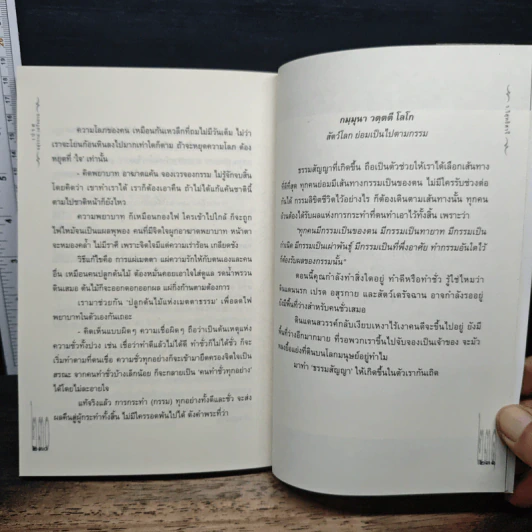 ความโลภของคน เหมือนกับเหวลึกที่ถมไม่มีวันเต็ม ไม่ว่า
เราจะโยนก้อนหินลงไปมากเท่าใดก็ตาม ถ้าจะหยุดความโลภ ต้อง
หยุดที่ 'ใจ' เท่านั้น
- คิดพยาบาท อาฆาตแค้น จองเวรจองกรรม ไม่รู้จักจบสิ้น
โดยคิดว่า เขาทำเราได้ เราก็ต้องเอาคืน ถ้าไม่ได้แก้แค้นชาตินี้
ตามไปชาติหน้าก็ยังไหว
ความพยาบาท ก็เหมือนกองไฟ ใครเข้าไปใกล้ ก็จะถูก
ไฟไหม้จนเป็นแผลพุพอง คนที่มีจิตใจผูกอาฆาตพยาบาท หน้าตา
จะหมองคล้ำ ไม่มีราศี เพราะจิตใจมีแต่ความเร่าร้อน เกลียดชัง
วิธีแก้ไขคือ การแผ่เมตตา แผ่ความรักให้กับตนเองและคน
อื่น เหมือนคนปลูกต้นไม้ ต้องหมั่นคอยเอาใจใส่ดูแล รดน้ำพรวน
ดินเสมอ ต้นไม้ก็จะออกดอกออกผล แผ่กิ่งก้านตามต้องการ
เรามาช่วยกัน 'ปลูกต้นไม้แห่งเมตตาธรรม' เพื่อลดไฟ
พยาบาทในตัวเองกันเถอะ
- คิดเห็นแบบผิดๆ ความเชื่อผิดๆ ถือว่าเป็นต้นเหตุแห่ง
ความชั่วทั้งปวง เช่น เชื่อว่าทำดีแล้วไม่ได้ดี ทำชั่วก็ไม่ได้ชั่ว ก็จะ
เริ่มทำตามที่ตนเชื่อ ความชั่วทุกอย่างก็จะเข้ามายึดครองจิตใจเป็น
สรณะ จากคนทำชั่วบ้างเล็กน้อย ก็จะกลายเป็น 'คนทำชั่วทุกอย่าง'
ได้โดยไม่ละอายใจ
แท้จริงแล้ว การกระทำ (กรรม) ทุกอย่างทั้งดีและชั่ว จะส่ง
ผลคืนสู่ผู้กระทำทั้งสิ้น ไม่มีใครรอดพ้นไปได้ ดังคำพระที่ว่า
กมฺมุนา วตฺตตี โลโก
สัตว์โลก ย่อมเป็นไปตามกรรม
ธรรมสัญญาที่เกิดขึ้น ถือเป็นตัวช่วยให้เราได้เลือกเส้นทาง
ที่ดีที่สุด ทุกคนย่อมมีเส้นทางกรรมเป็นของตน ไม่มีใครรับช่วงต่อ
กันได้ กรรมลิขิตชีวิตไว้อย่างไร ก็ต้องเดินตามเส้นทางนั้น ทุกคน
ล้วนต้องได้รับผลแห่งการกระทำที่ตนทำเอาไว้ทั้งสิ้น เพราะว่า
"ทุกคนมีกรรมเป็นของตน มีกรรมเป็นทายาท มีกรรมเป็น
กำเนิด มีกรรมเป็นเผ่าพันธุ์ มีกรรมเป็นที่พึ่งอาศัย ทำกรรมอันใดไว้
ก็ต้องรับผลของกรรมนั้น"
ตอนนี้คุณกำลังทำสิ่งใดอยู่ ทำดีหรือทำชั่ว รู้ใช่ไหมว่า
ดินแดนนรก เปรต อสุรกาย และสัตว์เดรัจฉาน อาจกำลังรออยู่
ยังมีพื้นที่ว่างสำหรับคนชั่วเสมอ
ดินแดนสวรรค์กลับเงียบเหงาไร้เงาคนดีจะขึ้นไปอยู่ ยังมี
พื้นที่ว่างอีกมากมาย ที่รอพวกเราขึ้นไปจับจองเป็นเจ้าของ จะมัว
หลงเยื่อแย่งที่ดินบนโลกมนุษย์อยู่ทำไม
มาทำ 'ธรรมสัญญา' ให้เกิดขึ้นในตัวเรากันเถิด